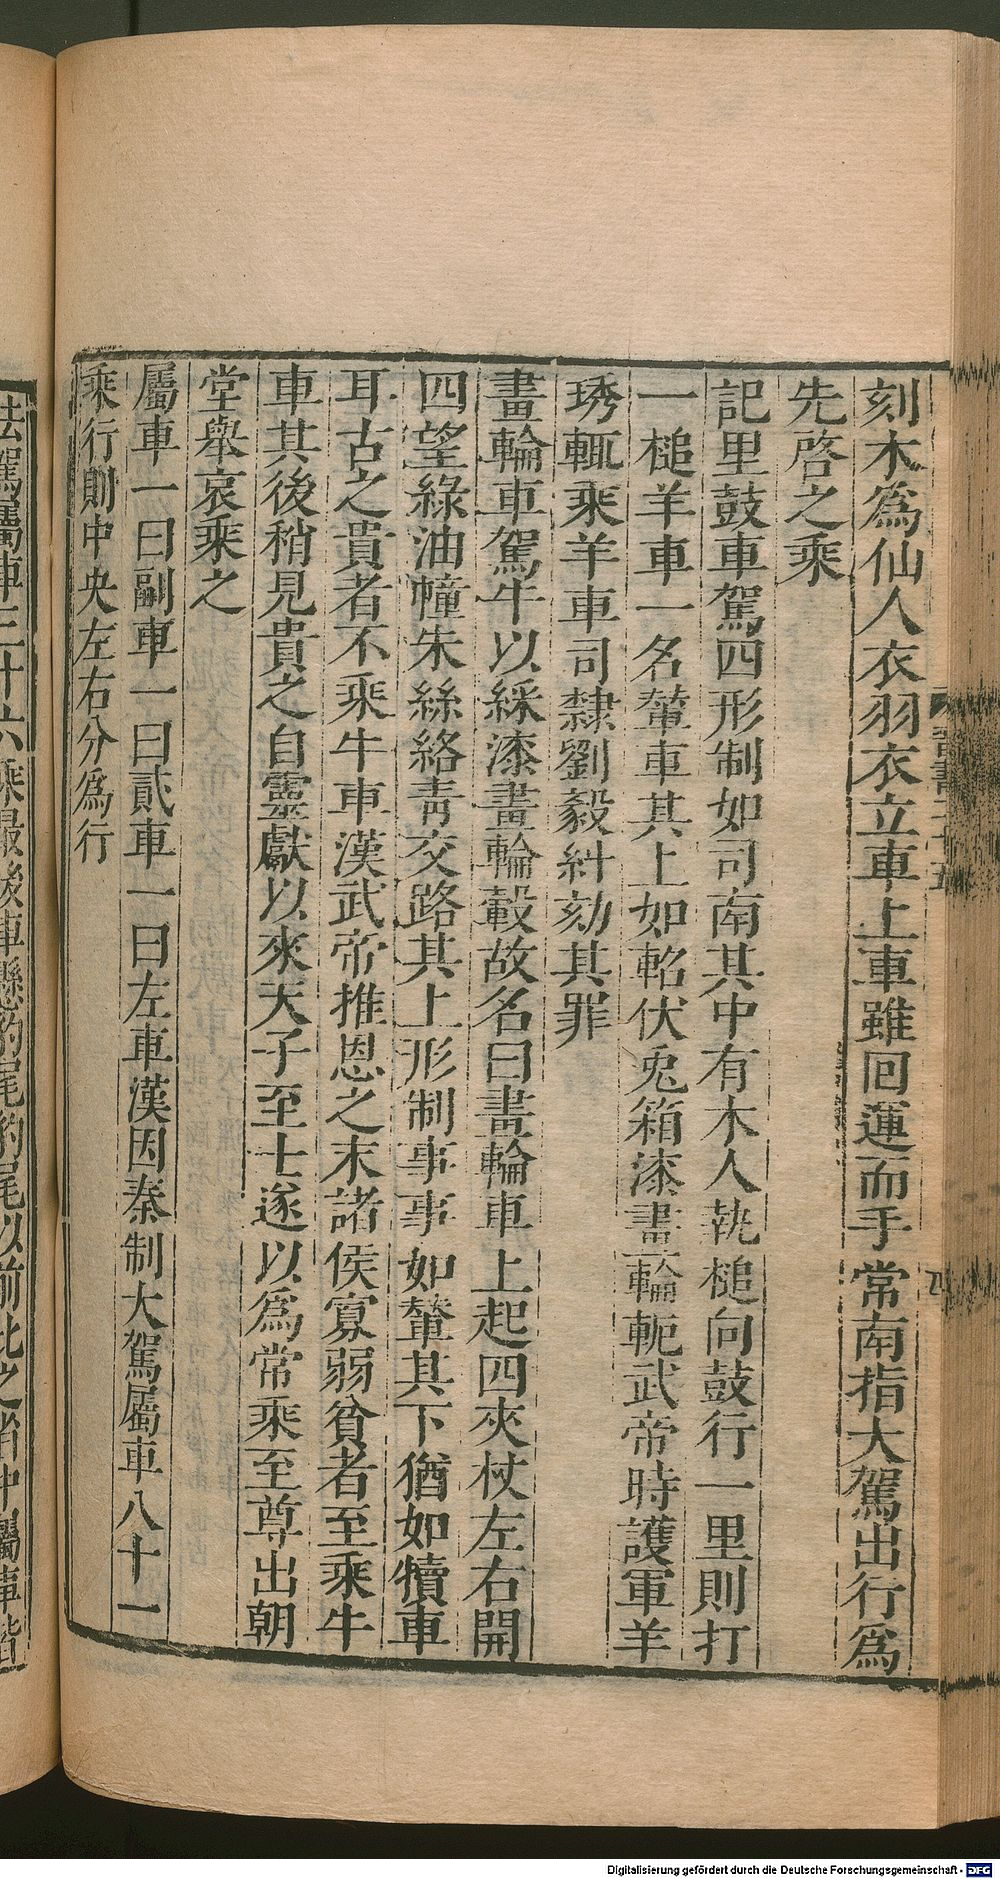 刻木爲仙人衣羽衣立車上車雖回運而手常南指大駕出行爲
先啓之乘
記里鼓車駕四形制如司南其中有木人執槌向鼓行一里則打
一槌羊車一名輦車其上如軺伏兎箱漆畫輪軛武帝時護軍羊
琇輒乘羊車司隸劉毅糾劾其罪
畫輪車駕牛以綵漆畫輪轂故名曰畫輪車上起四夾杖左右開
四望綠油幢朱絲絡青交路其上形制事事如輦其下猶如犢車
耳古之貴者不乘牛車漢武帝推恩之末諸侯寡弱貧者至乘牛
車其後稍見貴之自靈獻以來天子至士遂以爲常乘至尊出朝
堂舉哀乘之
屬車一曰副車一曰貳車一曰左車漢因秦制大駕屬車八十一
乘行則中央左右分爲行
法駕屬車三十六乘最後車懸豹尾豹尾以前比之省中屬車皆
Digitalisierung gefördert durch die Deutsche Forschungsgemeinschaft - DFG